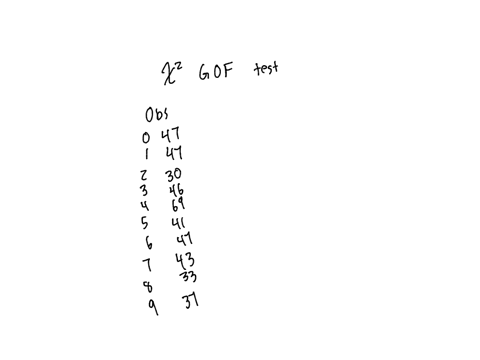 χ² GOF test
Obs
0 47
1 47
2 30
3 46
4 69
5 41
6 47
7 43
8 33
9 37